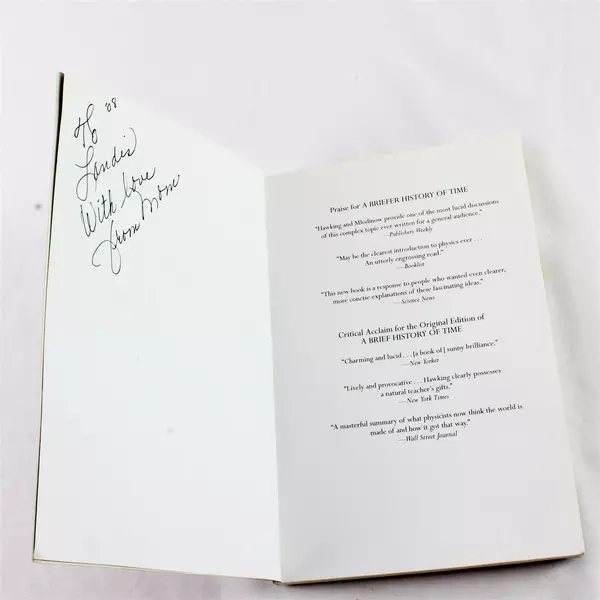 To '08
Landis
With love
from Mom
Praise for A BRIEFER HISTORY OF TIME
“Hawking and Mlodinow provide one of the most lucid discussions
of this complex topic ever written for a general audience.”
—Publishers Weekly
“May be the clearest introduction to physics ever . . .
An utterly engrossing read.”
—Booklist
“This new book is a response to people who wanted even clearer,
more concise explanations of these fascinating ideas.”
—Science News
Critical Acclaim for the Original Edition of
A BRIEF HISTORY OF TIME
“Charming and lucid . . . [a book of] sunny brilliance.”
—New Yorker
“Lively and provocative . . . Hawking clearly possesses
a natural teacher's gifts.”
—New York Times
“A masterful summary of what physicists now think the world is
made of and how it got that way.”
—Wall Street Journal